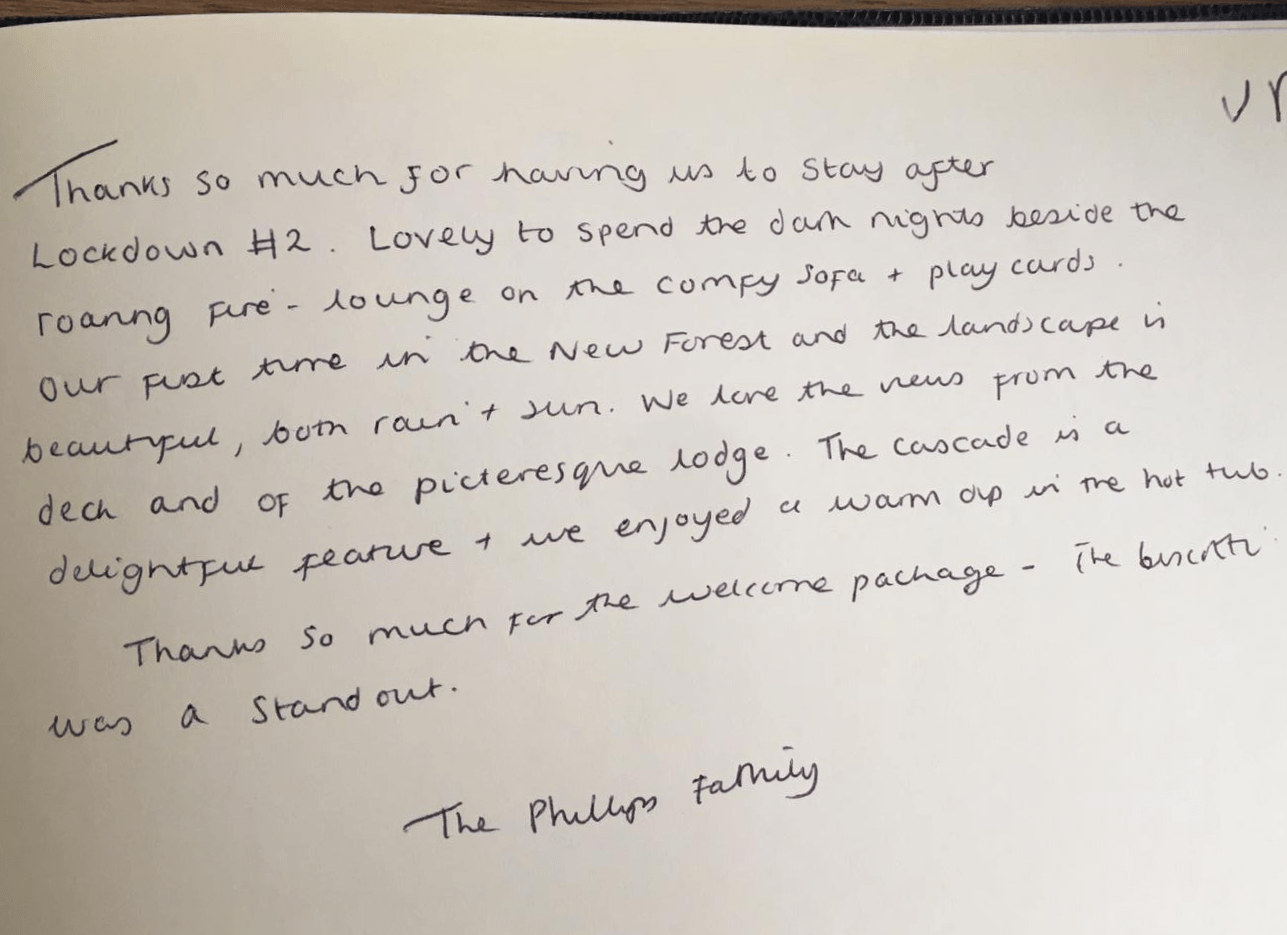 Thanks so much for having us to stay after
Lockdown #2. Lovely to spend the dark nights beside the
roaring fire - lounge on the comfy sofa + play cards.
Our first time in the New Forest and the landscape is
beautiful, both rain + sun. We love the views from the
deck and of the picteresque lodge. The cascade is a
delightful feature + we enjoyed a warm dip in the hot tub.
Thanks so much for the welcome package - The biscotti
was a stand out.
The Phillips Family